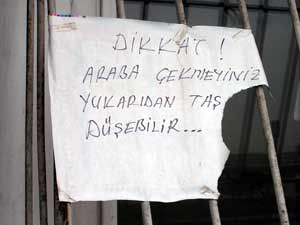 DİKKAT !
ARABA ÇEKMEYİNİZ
YUKARIDAN TAŞ
DÜŞEBİLİR...